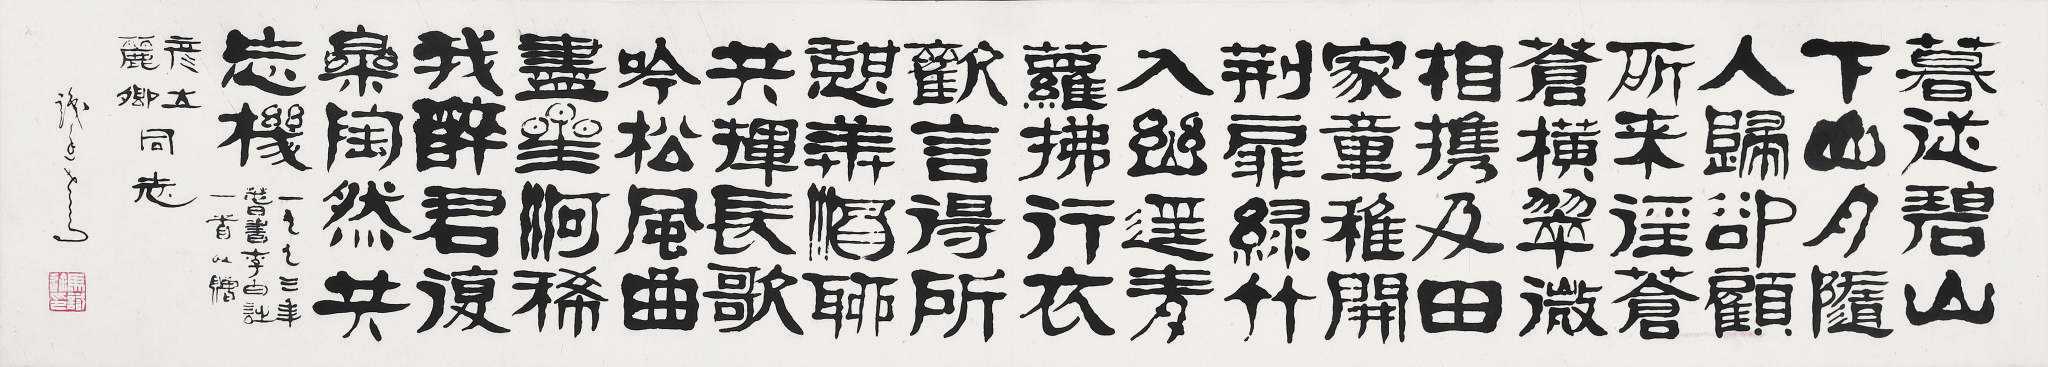 暮從碧山
下山月隨
人歸卻顧
所来徑蒼
蒼橫翠微
相携及田
家童稚開
荆扉綠竹
入幽逕青
蘿拂行衣
歡言得所
憩美酒聊
共揮長歌
吟松風曲
盡星河稀
我醉君復
樂陶然共
忘機
一九九三年
書李白詩
一首以贈
彦
麗卿
同志